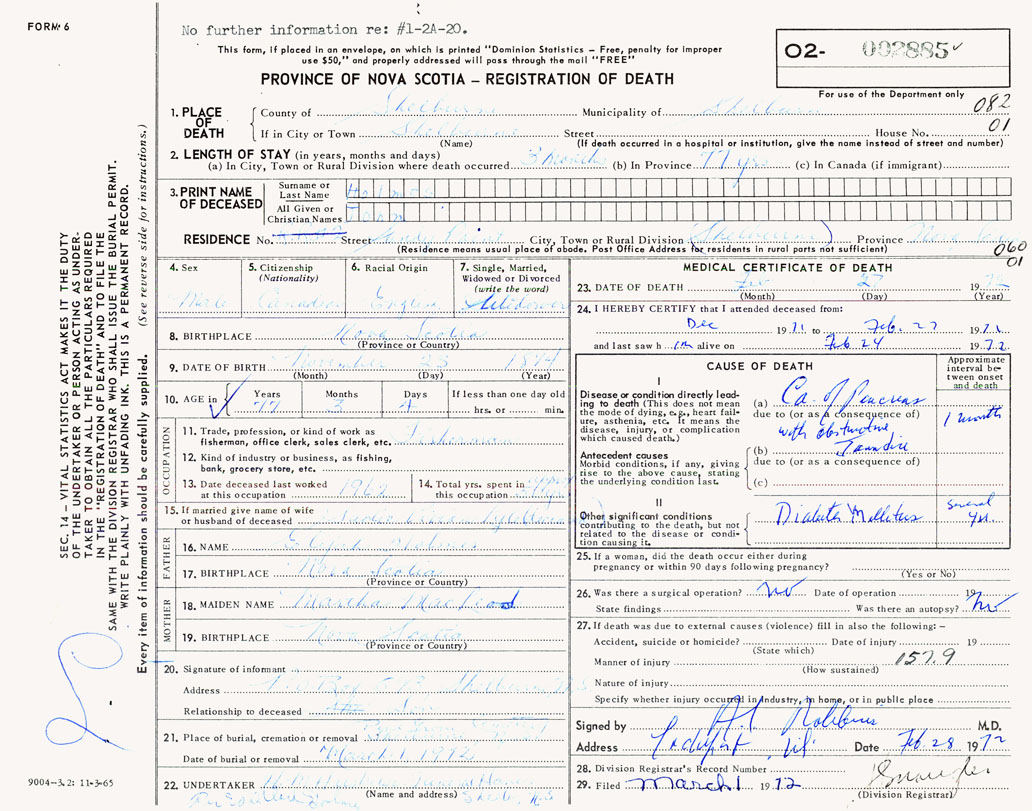 FORM 6
No further information re: #1-2A-20.
This form, if placed in an envelope, on which is printed "Dominion Statistics – Free, penalty for improper
use $50," and properly addressed will pass through the mail "FREE"
PROVINCE OF NOVA SCOTIA – REGISTRATION OF DEATH
O2- 002885
For use of the Department only
082
01
1. PLACE OF DEATH
County of Shelburne Municipality of Shelburne
If in City or Town Shelburne Street House No.
(Name) (If death occurred in a hospital or institution, give the name instead of street and number)
2. LENGTH OF STAY (in years, months and days)
(a) In City, Town or Rural Division where death occurred 3 Months (b) In Province 77 yrs (c) In Canada (if immigrant)
3. PRINT NAME OF DECEASED
Surname or Last Name Holmes
All Given or Christian Names John
RESIDENCE No. Street Sandy Point City, Town or Rural Division (Shelburne) Province Nova Scotia
(Residence means usual place of abode. Post Office Address for residents in rural parts not sufficient)
060
01
4. Sex Male
5. Citizenship (Nationality) Canadian
6. Racial Origin English
7. Single, Married, Widowed or Divorced (write the word) Widower
8. BIRTHPLACE Nova Scotia
(Province or Country)
9. DATE OF BIRTH November 23 1894
(Month) (Day) (Year)
10. AGE in Years Months Days If less than one day old
77 3 4 hrs. or min.
OCCUPATION
11. Trade, profession, or kind of work as fisherman, office clerk, sales clerk, etc. Fisherman
12. Kind of industry or business, as fishing, bank, grocery store, etc.
13. Date deceased last worked at this occupation 1962
14. Total yrs. spent in this occupation
15. If married give name of wife or husband of deceased
FATHER
16. NAME Holmes
17. BIRTHPLACE Nova Scotia
(Province or Country)
MOTHER
18. MAIDEN NAME Martha MacLeod
19. BIRTHPLACE Nova Scotia
(Province or Country)
20. Signature of informant
Address P.O. Box Shelburne N.S.
Relationship to deceased Son
21. Place of burial, cremation or removal
Date of burial or removal March 1 1972
22. UNDERTAKER Funeral Home
(Name and address) Shelb. N.S.
MEDICAL CERTIFICATE OF DEATH
23. DATE OF DEATH 27 1972
(Month) (Day) (Year)
24. I HEREBY CERTIFY that I attended deceased from:
Dec 1971 to Feb. 27 197
and last saw him alive on Feb 24 1972
CAUSE OF DEATH
Approximate interval between onset and death
I
Disease or condition directly leading to death (This does not mean the mode of dying, e.g., heart failure, asthenia, etc. It means the disease, injury, or complication which caused death.)
(a) Ca. of Pancreas
due to (or as a consequence of)
with obstructive 1 month
(b) Jaundice
due to (or as a consequence of)
(c)
Antecedent causes
Morbid conditions, if any, giving rise to the above cause, stating the underlying condition last.
II
Other significant conditions contributing to the death, but not related to the disease or condition causing it.
Diabetes Mellitus Several yrs.
25. If a woman, did the death occur either during pregnancy or within 90 days following pregnancy?
(Yes or No)
26. Was there a surgical operation? No Date of operation 19
State findings Was there an autopsy? No
27. If death was due to external causes (violence) fill in also the following: –
Accident, suicide or homicide? Date of injury 19
(State which)
Manner of injury 157.9
(How sustained)
Nature of injury
Specify whether injury occurred in industry, in home, or in public place
Signed by M.D.
Address Lockeport, N.S. Date Feb. 28 1972
28. Division Registrar's Record Number
29. Filed March 1 1972
(Division Registrar)
SEC. 14 – VITAL STATISTICS ACT MAKES IT THE DUTY
OF THE UNDERTAKER OR PERSON ACTING AS UNDER-
TAKER TO OBTAIN ALL THE PARTICULARS REQUIRED
IN THE "REGISTRATION OF DEATH" AND TO FILE THE
SAME WITH THE DIVISION REGISTRAR WHO SHALL ISSUE THE BURIAL PERMIT.
WRITE PLAINLY WITH UNFADING INK. THIS IS A PERMANENT RECORD.
Every item of information should be carefully supplied. (See reverse side for instructions.)
9004-3.2: 11-3-65